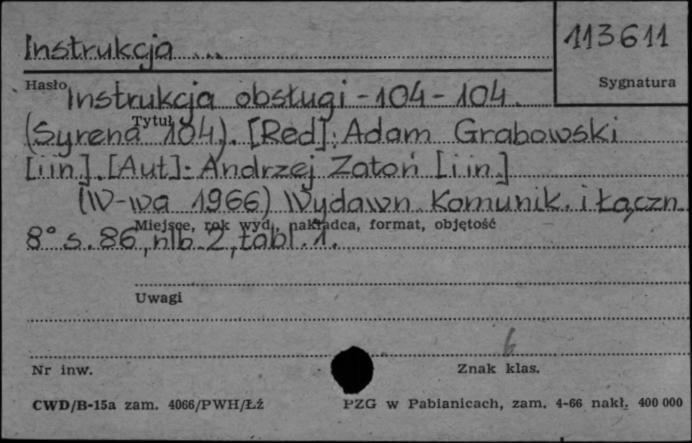 Instrukcja ...
113611
Hasło
Sygnatura
Instrukcja obsługi - 104 - 104.
Tytuł
(Syrena 104). [Red]: Adam Grabowski
[i in.]. [Aut]: Andrzej Zatoń [i in.]
(W-wa 1966) Wydawn. Komunik. i Łączn.
Miejsce, rok wyd., nakładca, format, objętość
8° s. 86, nlb. 2, tabl. 1.
Uwagi
6
Nr inw.
Znak klas.
CWD/B-15a zam. 4066/PWH/Łź
PZG w Pabianicach, zam. 4-66 nakł. 400 000